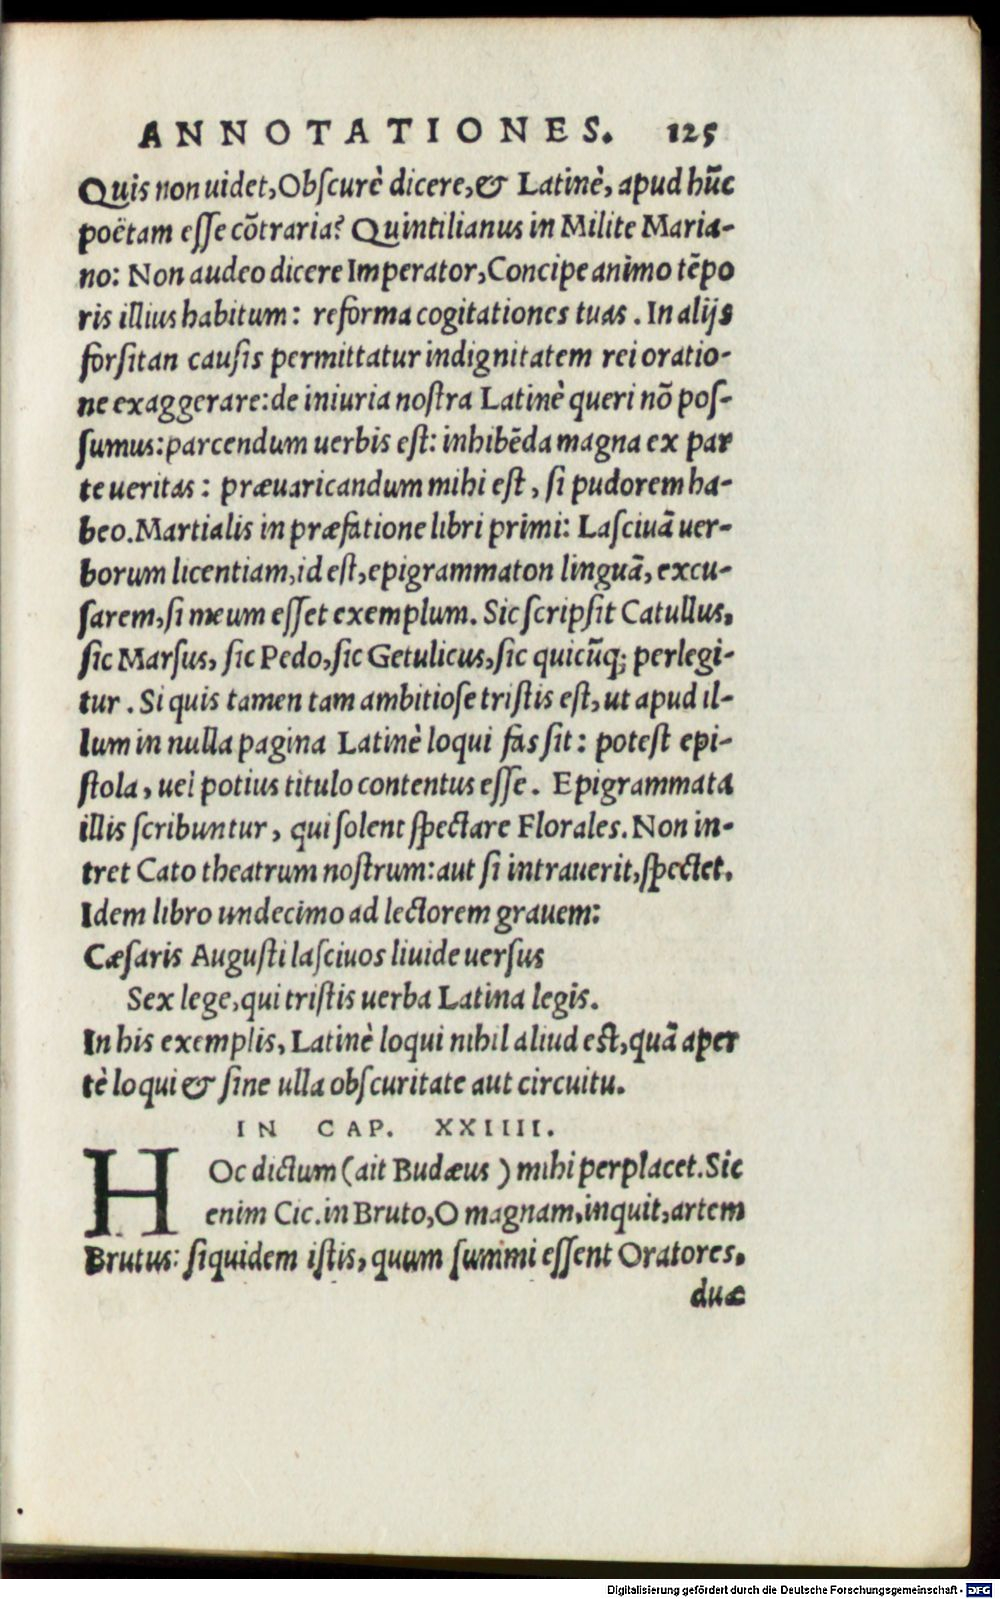 ANNOTATIONES. 125
Quis non uidet, Obſcurè dicere, & Latinè, apud hūc
poëtam eſſe cōtraria? Quintilianus in Milite Maria-
no: Non audeo dicere Imperator, Concipe animo tēpo
ris illius habitum: reforma cogitationes tuas. In alijs
forſitan cauſis permittatur indignitatem rei oratio-
ne exaggerare: de iniuria noſtra Latinè queri nō poſ-
ſumus: parcendum uerbis eſt: inhibēda magna ex par
te ueritas: præuaricandum mihi eſt, ſi pudorem ha-
beo. Martialis in præfatione libri primi: Laſciuā uer-
borum licentiam, id eſt, epigrammaton linguā, excu-
ſarem, ſi meum eſſet exemplum. Sic ſcripſit Catullus,
ſic Marſus, ſic Pedo, ſic Getulicus, ſic quicūq; perlegi-
tur. Si quis tamen tam ambitioſe triſtis eſt, ut apud il-
lum in nulla pagina Latinè loqui fas ſit: poteſt epi-
ſtola, uel potius titulo contentus eſſe. Epigrammata
illis ſcribuntur, qui ſolent ſpectare Florales. Non in-
tret Cato theatrum noſtrum: aut ſi intrauerit, ſpectet.
Idem libro undecimo ad lectorem grauem:
Cæſaris Auguſti laſciuos liuide uerſus
Sex lege, qui triſtis uerba Latina legis.
In his exemplis, Latinè loqui nihil aliud eſt, quā aper
tè loqui & ſine ulla obſcuritate aut circuitu.
IN CAP. XXIIII.
HOc dictum (ait Budæus) mihi perplacet. Sic
enim Cic. in Bruto, O magnam, inquit, artem
Brutus: ſiquidem iſtis, quum ſummi eſſent Oratores,
duæ
Digitalisierung gefördert durch die Deutsche Forschungsgemeinschaft - DFG